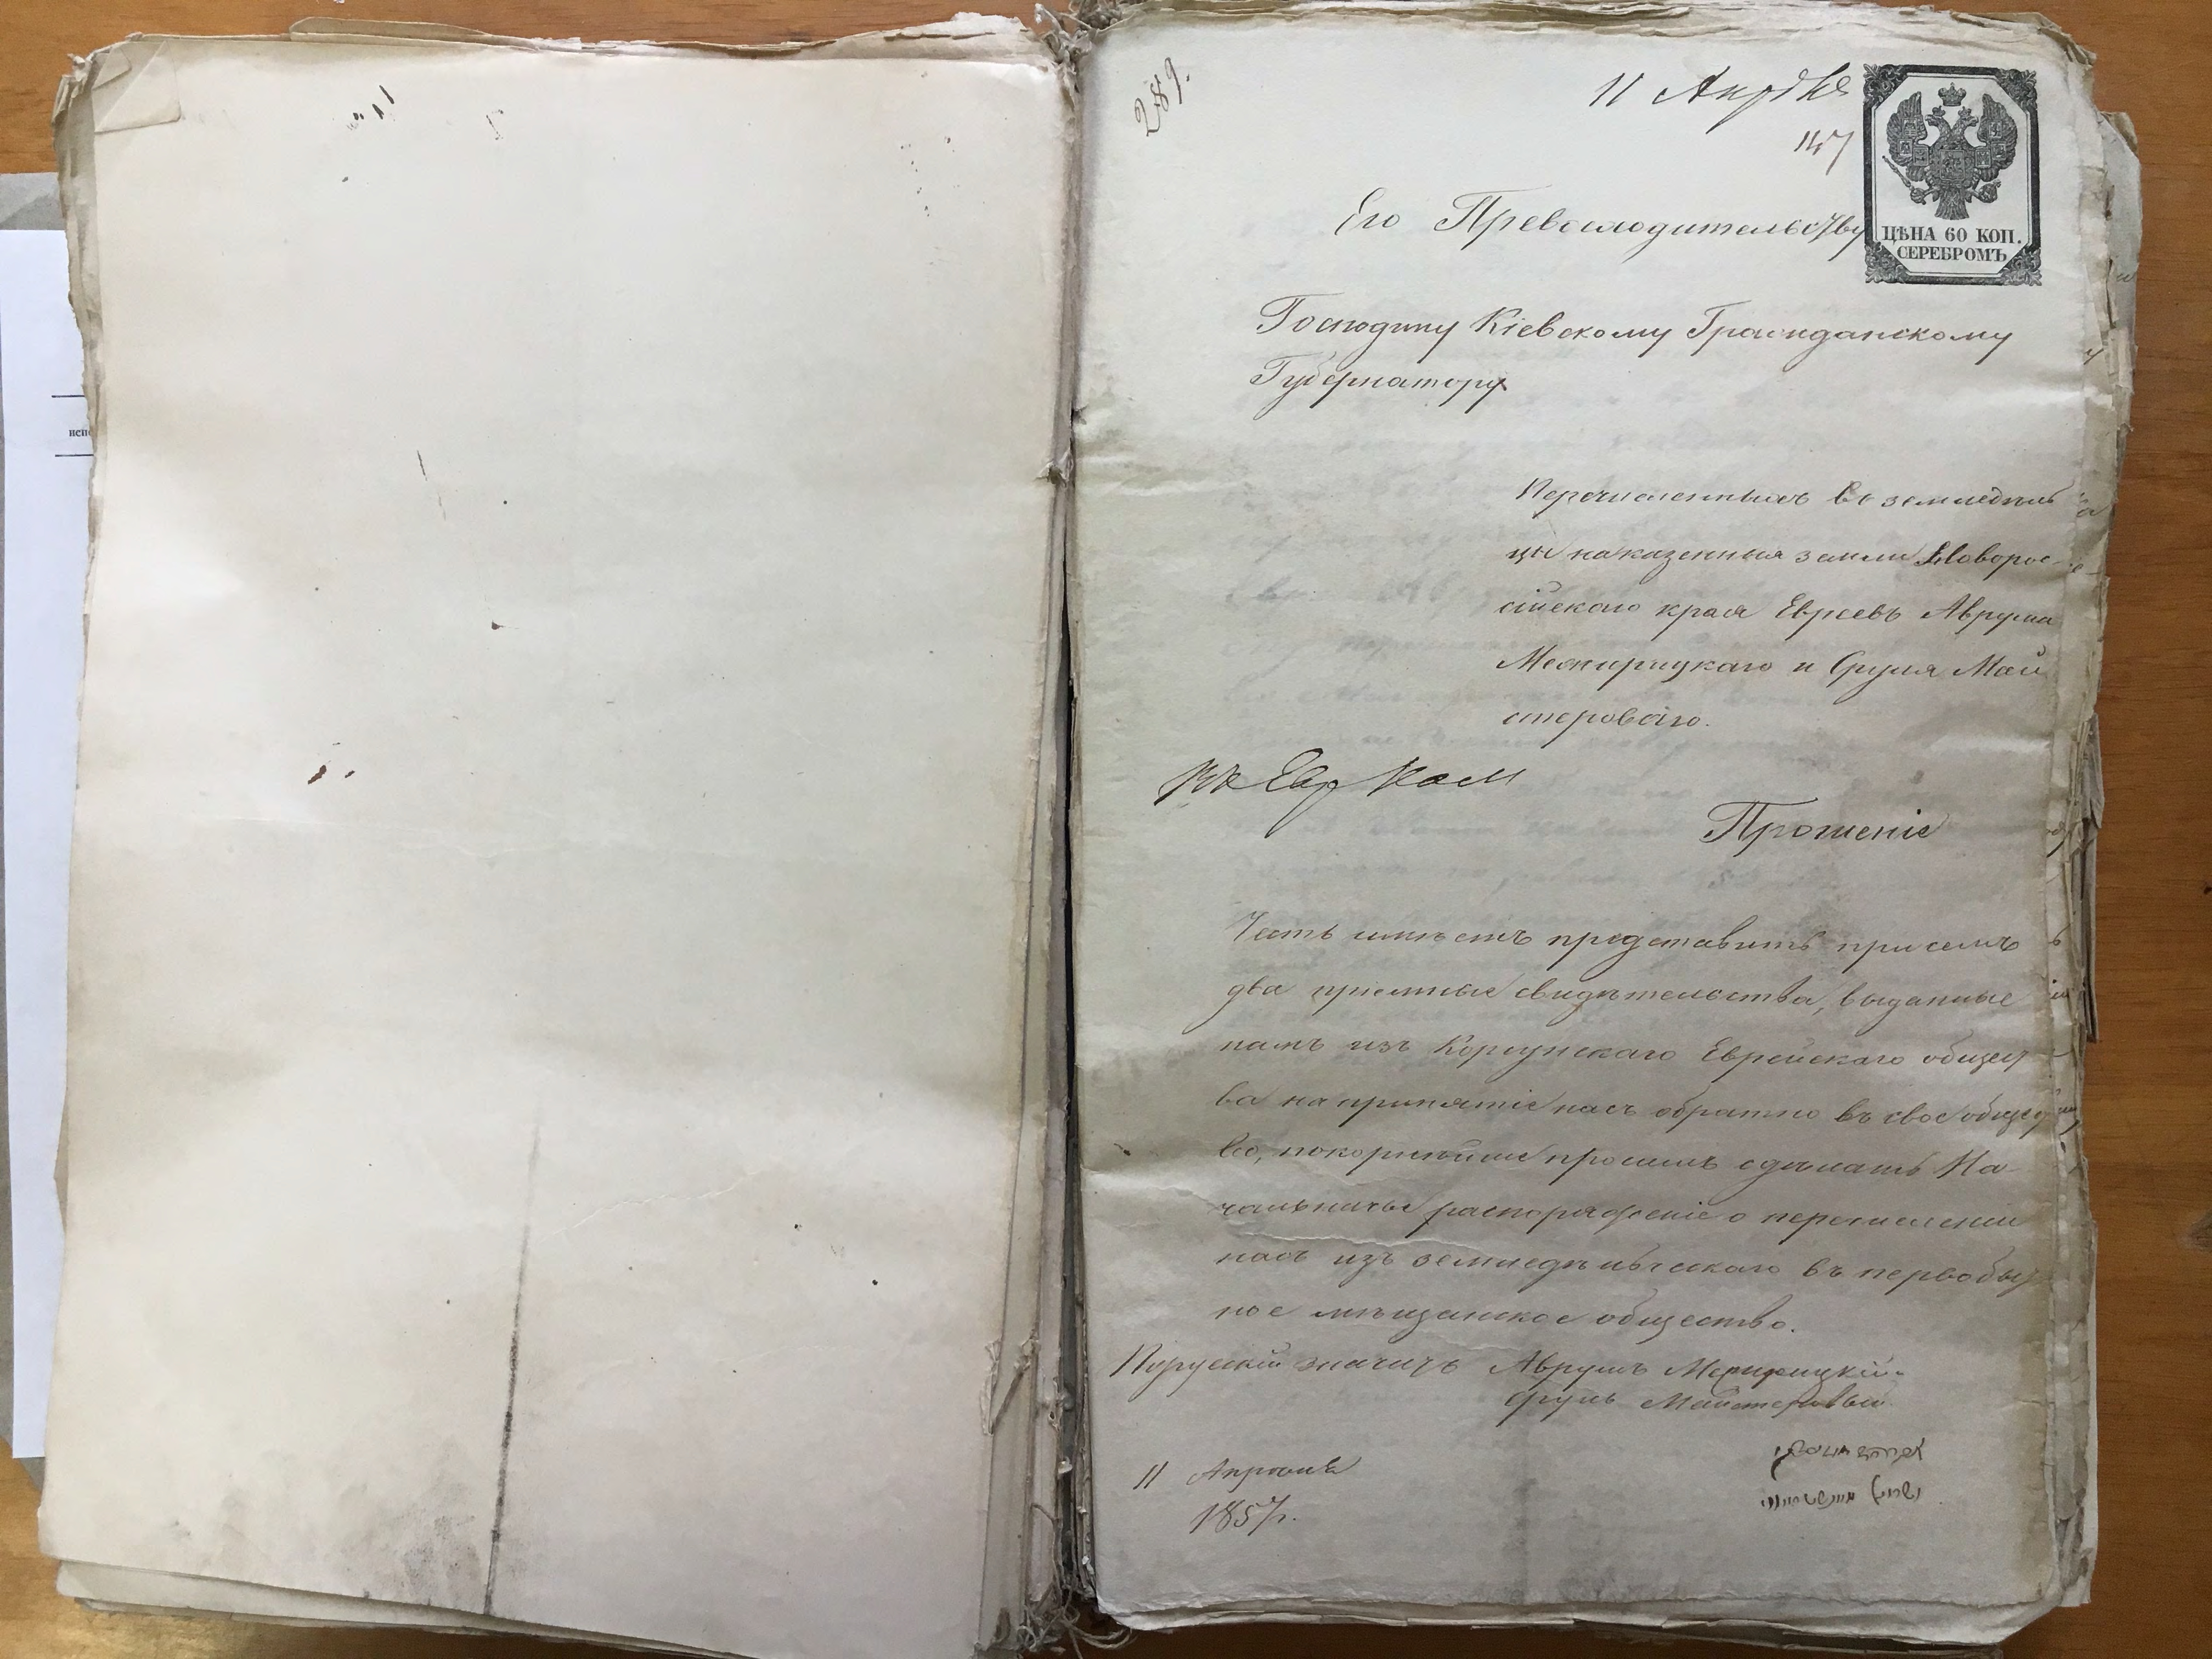 289.
11 Апрѣля
147
ЦѢНА 60 КОП.
СЕРЕБРОМЪ
Его Превосходительству
Господину Кіевскому Гражданскому
Губернатору
Перечисленныхъ въ земледѣль
цы на казенныя земли Новорос-
сійскаго края Евреевъ Аврума
Межирицкаго и Сруля Май
стероваго.
Въ Евр
Прошеніе
Честь имѣемъ представить при семъ
два пріемные свидѣтельства, выданные
намъ изъ Корсунскаго Еврейскаго общест
ва на принятіе насъ обратно въ свое общест
во, покорнѣйше просимъ сдѣлать На
чальничье распоряженіе о перечисленіи
насъ изъ земледѣльческаго въ первобыт
ное мѣщанское общество.
Порускій значитъ Аврумъ Межирицкій
Сруль Майстеровый
11 Апрѣля
1857 г.